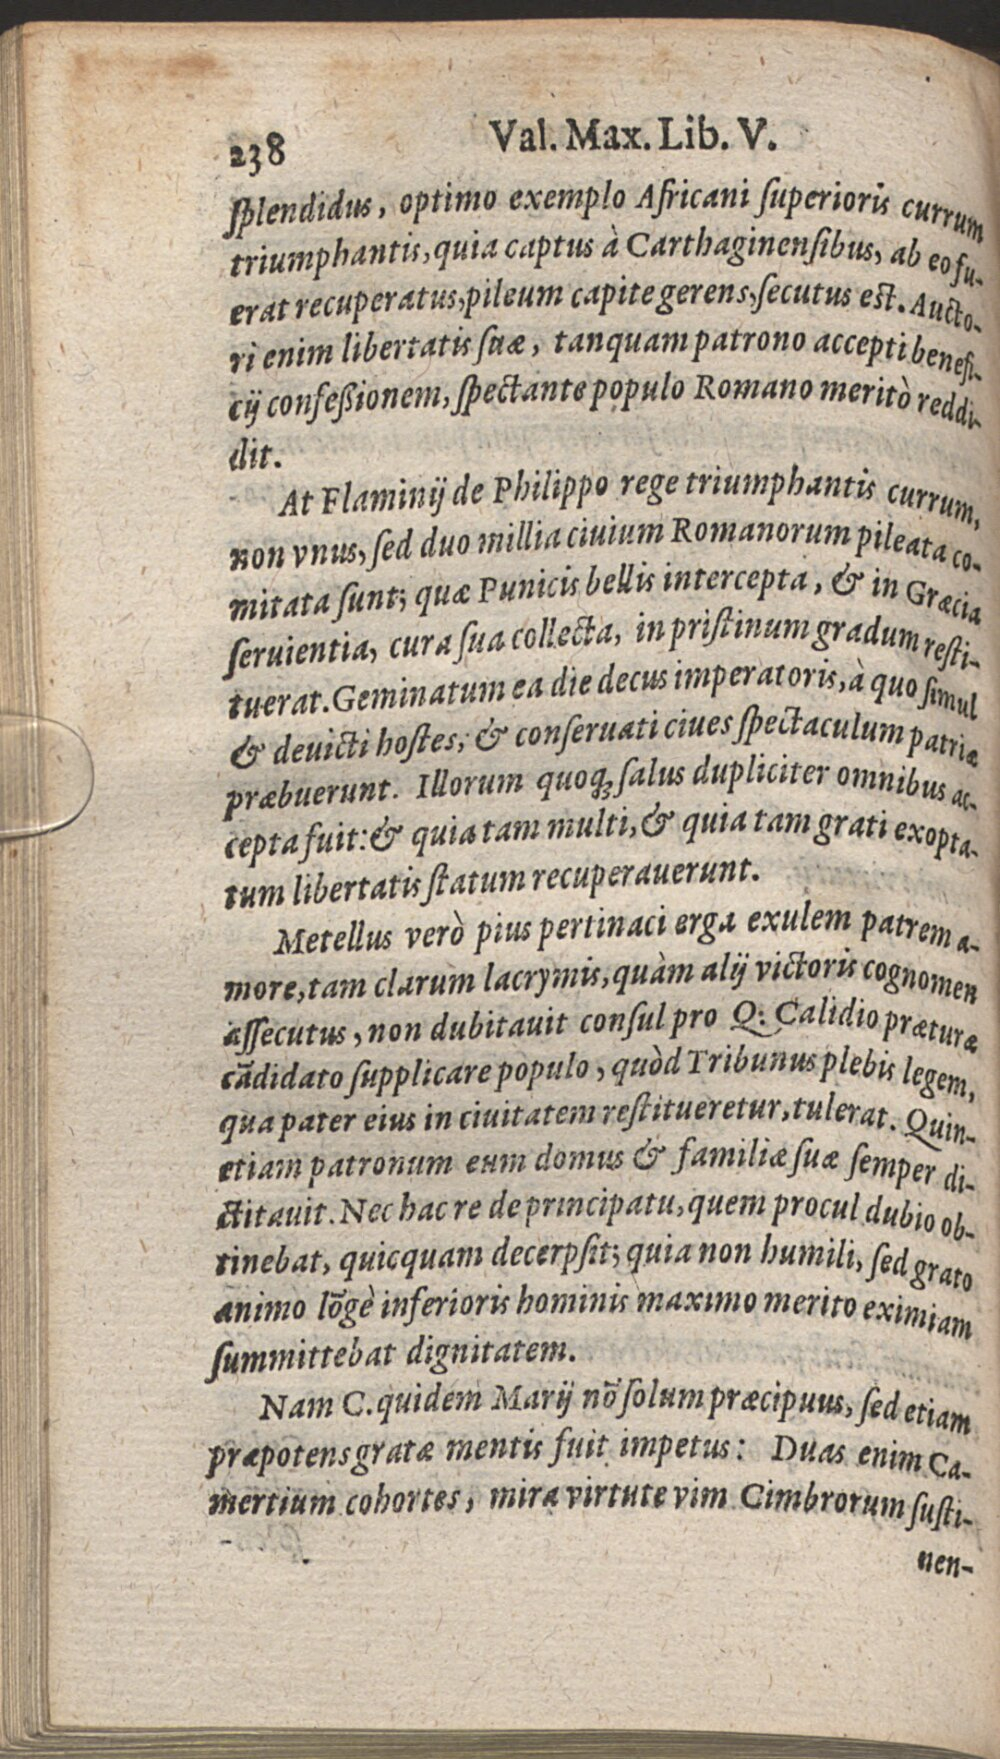 238 Val. Max. Lib. V.
ſplendidus, optimo exemplo Africani ſuperioris currum
triumphantis, quia captus à Carthaginenſibus, ab eo fu-
erat recuperatus, pileum capite gerens, ſecutus est. Aucto-
ri enim libertatis ſuæ, tanquam patrono accepti benefi-
cij confeßionem, ſpectante populo Romano meritò reddi-
dit.
At Flaminij de Philippo rege triumphantis currum,
non vnus, ſed duo millia ciuium Romanorum pileata co-
mitata ſunt; quæ Punicis bellis intercepta, & in Græcia
ſeruientia, cura ſua collecta, in priſtinum gradum reſti-
tuerat. Geminatum ea die decus imperatoris, à quo ſimul
& deuicti hoſtes, & conſeruati ciues ſpectaculum patriæ
præbuerunt. Illorum quoqꝫ ſalus dupliciter omnibus ac-
cepta fuit: & quia tam multi, & quia tam grati exopta-
tum libertatis ſtatum recuperauerunt.
Metellus verò pius pertinaci erga exulem patrem a-
more, tam clarum lacrymis, quàm alij victoris cognomen
aſſecutus, non dubitauit conſul pro Q: Calidio præturæ
cādidato ſupplicare populo, quòd Tribunus plebis legem,
qua pater eius in ciuitatem reſtitueretur, tulerat. Quin-
etiam patronum eum domus & familiæ ſuæ ſemper di-
ctitauit. Nec hac re de principatu, quem procul dubio ob-
tinebat, quicquam decerpſit; quia non humili, ſed grato
animo lōgè inferioris hominis maximo merito eximiam
ſummittebat dignitatem.
Nam C. quidem Marij nō ſolum præcipuus, ſed etiam
præpotens gratæ mentis fuit impetus: Duas enim Ca-
mertium cohortes, mira virtute vim Cimbrorum ſuſti-
nen-